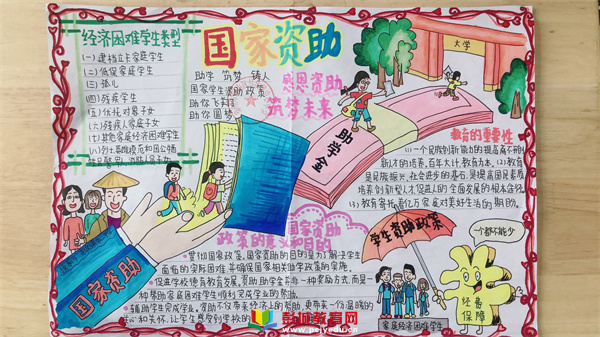 经济困难学生类型
(一)建档立卡家庭学生
(二)低保家庭学生
(三)孤儿
(四)残疾学生
(五)优抚对象子女
(六)残疾人家庭子女
(七)其他家庭经济困难学生
(八)烈士、英雄模范和因公牺牲
国家资助
助学 筑梦 铸人
国家学生资助政策
助你飞
助你圆梦
感恩资助
筑梦未来
大学
助学金
教育的重要性
(1)一个民族创新能力的提高离不开创
新人才的培养,百年大计,教育为本,(2)教育
是民族振兴、社会进步的基石,是提高国民素质
培养创新型人才促进人的全面发展的根本
(3)教育寄托着亿万家庭对美好生活的期盼。
国家资助
国家资助
政策的意义和目的
贯彻国家政策,国家资助的目的是为了解决学生
面临的实际困难,并确保国家相关助学政策的实施。
促进学校德育教育发展,资助助学金亦是一种奖励方式,而是一
种帮助家庭困难学生顺利完成学业的帮助。
辅助学生完成学业。资助不仅带来经济上的帮助,更带来一份温暖的
关心和关怀,让学生感受到学校的
学生资助政策
家庭经济困难学生
一个都不能少
经费
保障
彭师教育网
www.pejyedu.cn